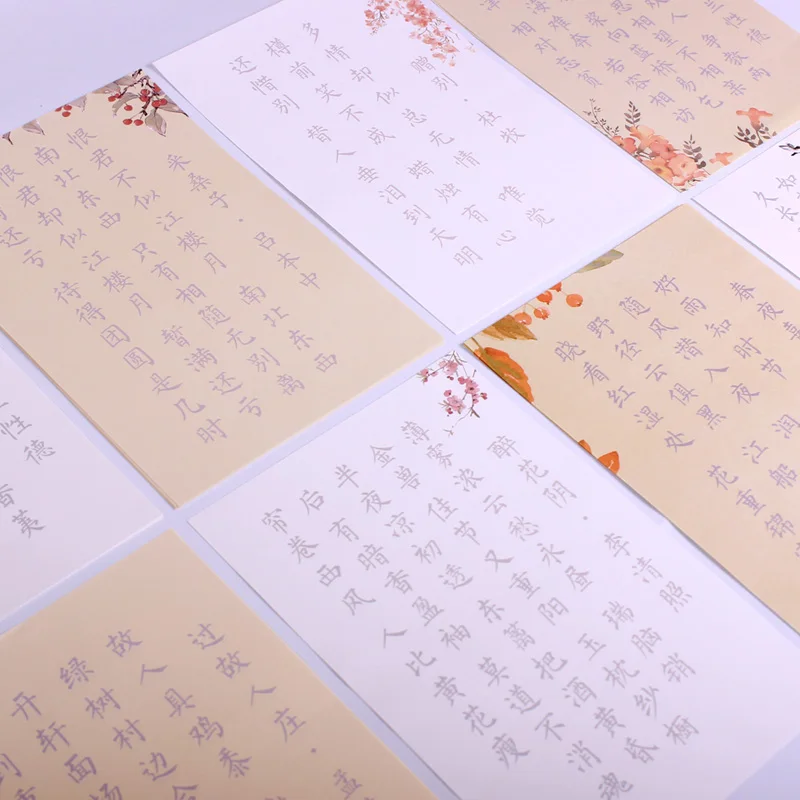 赠别·杜牧
多情却似总无情 唯觉
樽前笑不成 蜡烛有心
还惜别 替人垂泪到天明
采桑子·吕本中
恨君不似江楼月 南北东西
南北东西 只有相随无别离
恨君却似江楼月 暂满还亏
还亏 待得团圆是几时
醉花阴·李清照
薄雾浓云愁永昼 瑞脑销
金兽 佳节又重阳 玉枕纱橱
半夜凉初透 东篱把酒黄昏
后 有暗香盈袖 莫道不消魂
帘卷西风 人比黄花瘦
春夜喜
好雨知时节
随风潜入夜 润
野径云俱黑 江船
晓看红湿处 花重锦
过故人庄·孟
故人具鸡黍
绿树村边合
开轩面场
性德
如
久长